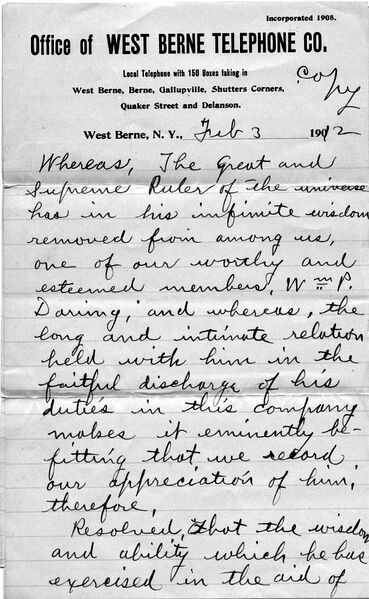 Incorporated 1908.
Office of WEST BERNE TELEPHONE CO.
Local Telephone with 150 Boxes taking in
Copy
West Berne, Berne, Gallupville, Shutters Corners,
Quaker Street and Delanson.
West Berne, N. Y., Feb 3 1912
Whereas, The Great and
Supreme Ruler of the universe
has in his infinite wisdom
removed from among us,
one of our worthy and
esteemed members, Wm P.
Daring; and whereas, the
long and intimate relation
held with him in the
faitful discharge of his
duties in this company
makes it eminently be-
fitting that we record
our appreciation of him;
therefore,
Resolved, that the wisdom
and ability which he has
exercised in the aid of